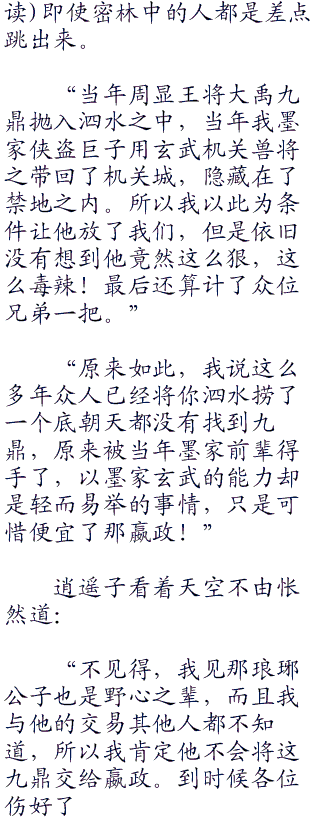 读)即使密林中的人都是差点
跳出来。
“当年周显王将大禹九
鼎抛入泗水之中，当年我墨
家侠盗巨子用玄武机关兽将
之带回了机关城，隐藏在了
禁地之内。所以我以此为条
件让他放了我们，但是依旧
没有想到他竟然这么狠，这
么毒辣！最后还算计了众位
兄弟一把。”
“原来如此，我说这么
多年众人已经将你泗水捞了
一个底朝天都没有找到九
鼎，原来被当年墨家前辈得
手了，以墨家玄武的能力却
是轻而易举的事情，只是可
惜便宜了那嬴政！”
逍遥子看着天空不由怅
然道：
“不见得，我见那琅琊
公子也是野心之辈，而且我
与他的交易其他人都不知
道，所以我肯定他不会将这
九鼎交给嬴政。到时候各位
伤好了